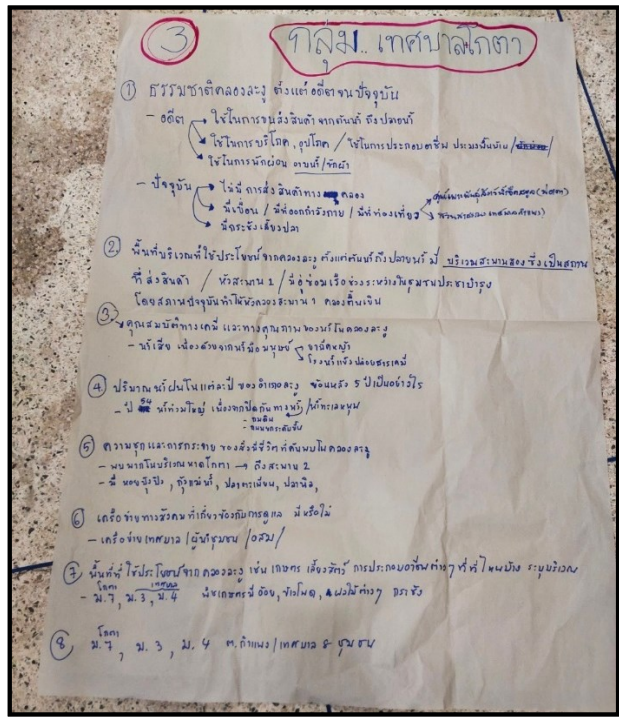 3 กลุ่ม.. เทศบาลโกตา
① ธรรมชาติคลองละงู ตั้งแต่อดีตจนปัจจุบัน
- อดีต → ใช้ในการขนส่งสินค้า จากต้นน้ำ ถึงปลายน้ำ
→ ใช้ในการบริโภค, อุปโภค / ใช้ในการประกอบอาชีพ ประมงพื้นบ้าน /
ใช้ในการพักผ่อน อาบน้ำ/ซักผ้า
- ปัจจุบัน → ไม่มีการส่งสินค้าทางคลอง
→ มีเขื่อน / มีที่ออกกำลังกาย / มีที่ท่องเที่ยว
→ มีกระชังเลี้ยงปลา
② พื้นที่บริเวณที่ใช้ประโยชน์จากคลองละงู ตั้งแต่ต้นน้ำถึงปลายน้ำ มี บริเวณสะพานสอง ซึ่งเป็นสถาน
ที่ส่งสินค้า / หัวสะพาน 2 / มีอู่ซ่อมเรือ ในชุมชนประชาบำรุง
โดยสถานปัจจุบันทำให้ คลองตื้นเขิน
③ คุณสมบัติทางเคมี และทางคุณภาพของน้ำในคลองละงู
- น้ำเสีย เนื่องด้วยจากน้ำมือมนุษย์ ยาฉีดหญ้า
โรงน้ำแข็งปล่อยสารเคมี
④ ปริมาณน้ำฝนในแต่ละปี ของอำเภอละงู ย้อนหลัง 5 ปีเป็นอย่างไร
- ปี 54 น้ำท่วมใหญ่ เนื่องจากปิดกั้นทางน้ำ /น้ำทะเลหนุน
- ถมดิน
- ถนนยกระดับขึ้น
⑤ ความชุกและการกระจาย ของสิ่งมีชีวิตที่ค้นพบในคลองละงู
- พบมากในบริเวณหาดโกตา → ถึงสะพาน 2
- มี หอยปุงปิง, กุ้งแม่น้ำ, ปลาตะเพียน, ปลานิล,
⑥ เครือข่ายทางสังคม ที่เกี่ยวข้องกับการดูแล มีหรือไม่
- เครือข่ายเทศบาล /ผู้นำชุมชน /อสม/
⑦ พื้นที่ที่ใช้ประโยชน์จากคลองละงู เช่น เกษตร เลี้ยงสัตว์ การประกอบอาชีพต่างๆ ที่ที่ไหนบ้าง ระบุบริเวณ
โกตา เทศบาล
- ม.7, ม.3, ม.4 พืชเกษตรมี อ้อย, ข้าวโพด, ผลไม้ต่างๆ กระชัง
โกตา
⑧ ม.7, ม.3, ม.4 ต.กำแพง/เทศบาล 8 ชุมชน